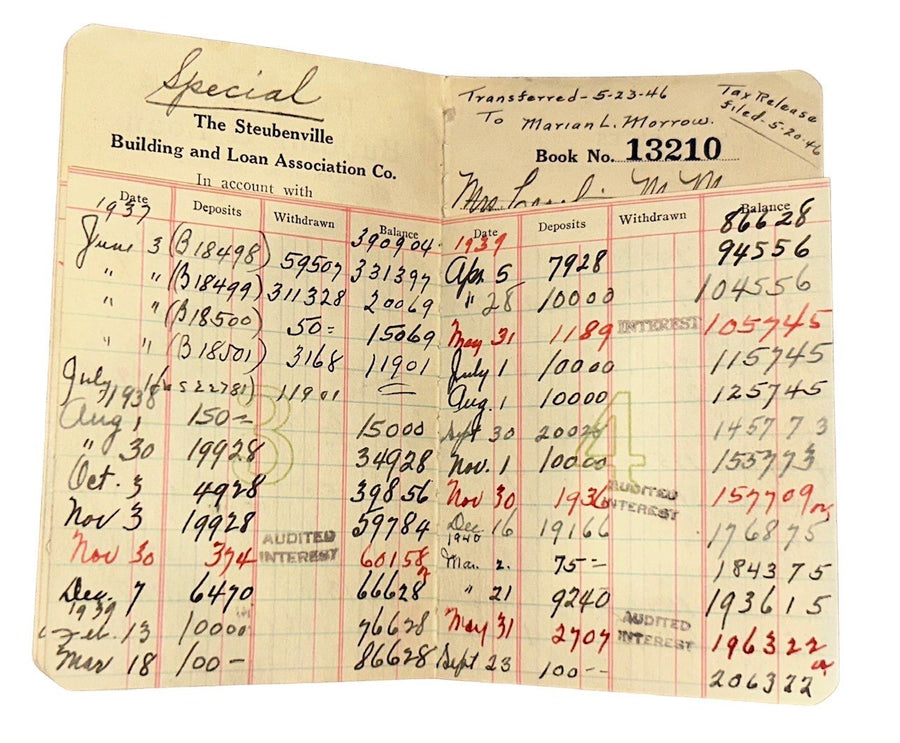 Special
The Steubenville
Building and Loan Association Co.
In account with
Date Deposits Withdrawn Balance
1937 390904
June 3 (B18498) 59507 331397
" " (B18499) 311328 20069
" " (B18500) 50= 15069
" " (B18501) 3168 11901
July 16 S22781) 11901
1938
Aug 1 150= 15000
" 30 19928 34928
Oct. 3 4928 39856
Nov 3 19928 59784
Nov 30 374 AUDITED INTEREST 60158
Dec. 7 6470 66628
1939
Feb. 13 10000 76628
Mar 18 100- 86628
3
Transferred-5-23-46
To Marian L. Morrow.
Tax Release
filed-5-20-46
Book No. 13210
Mrs
Date Deposits Withdrawn Balance
1939 86628
Apr 5 7928 94556
" 28 10000 104556
May 31 1189 INTEREST 105745
July 1 10000 115745
Aug. 1 10000 125745
Sept 30 20028 145773
Nov. 1 10000 155773
Nov 30 1936 AUDITED INTEREST 157709
Dec 16 19166 176875
1940
Mar. 2. 75- 184375
" 21 9240 193615
May 31 2707 AUDITED INTEREST 196322
Sept 23 100-- 206322
4